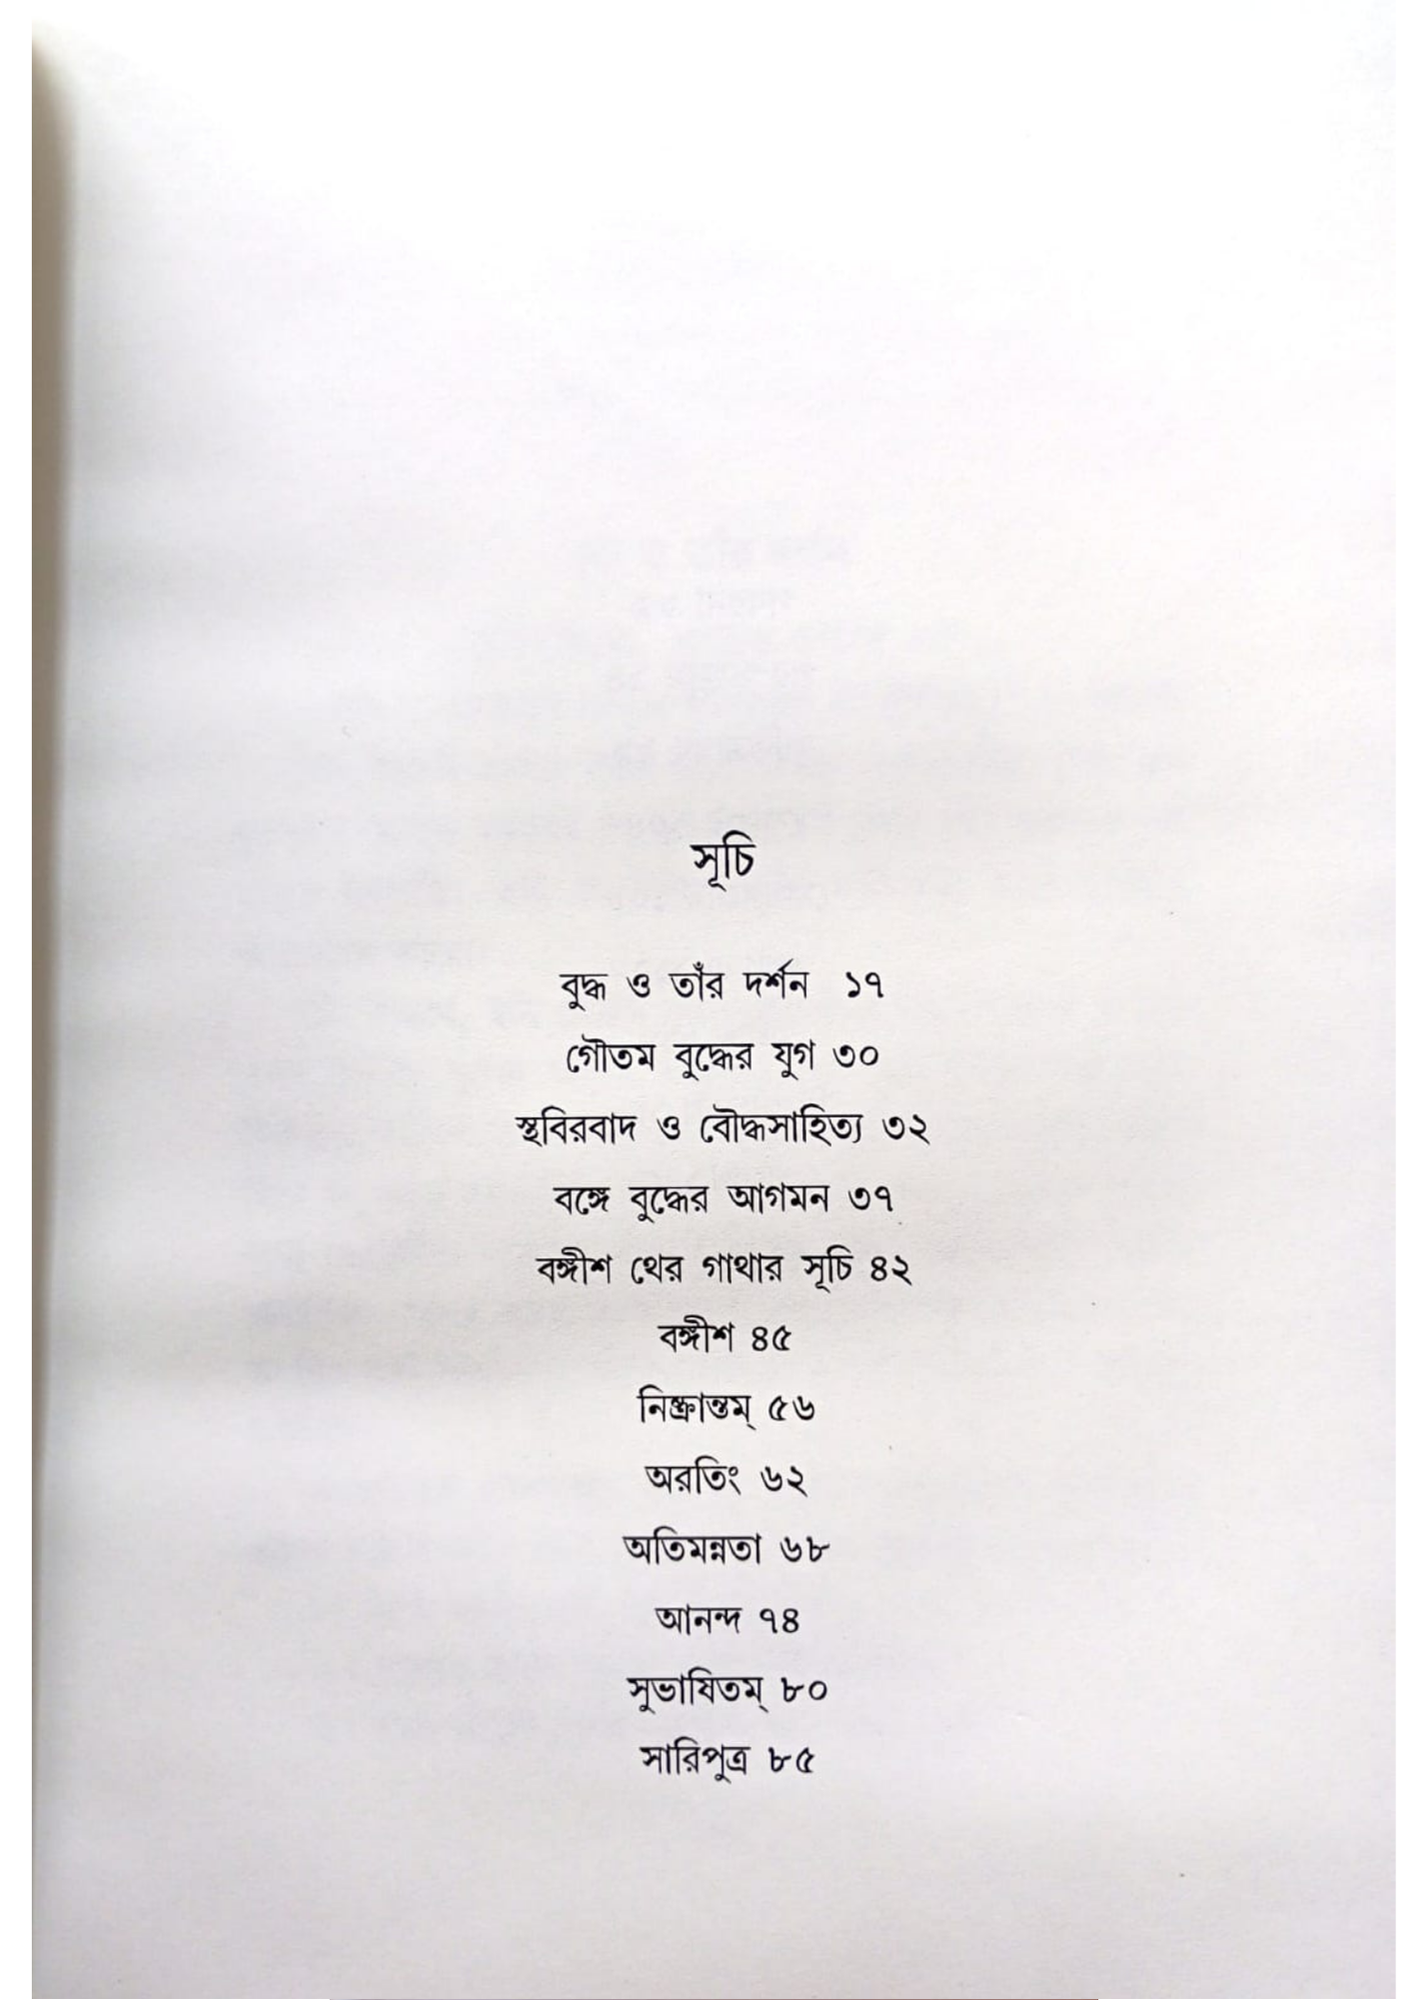 সূচি
বুদ্ধ ও তাঁর দর্শন ১৭
গৌতম বুদ্ধের যুগ ৩০
স্থবিরবাদ ও বৌদ্ধসাহিত্য ৩২
বঙ্গে বুদ্ধের আগমন ৩৭
বঙ্গীশ থের গাথার সূচি ৪২
বঙ্গীশ ৪৫
নিষ্ক্রান্তম্ ৫৬
অরতিং ৬২
অতিমন্নতা ৬৮
আনন্দ ৭৪
সুভাষিতম্ ৮০
সারিপুত্র ৮৫